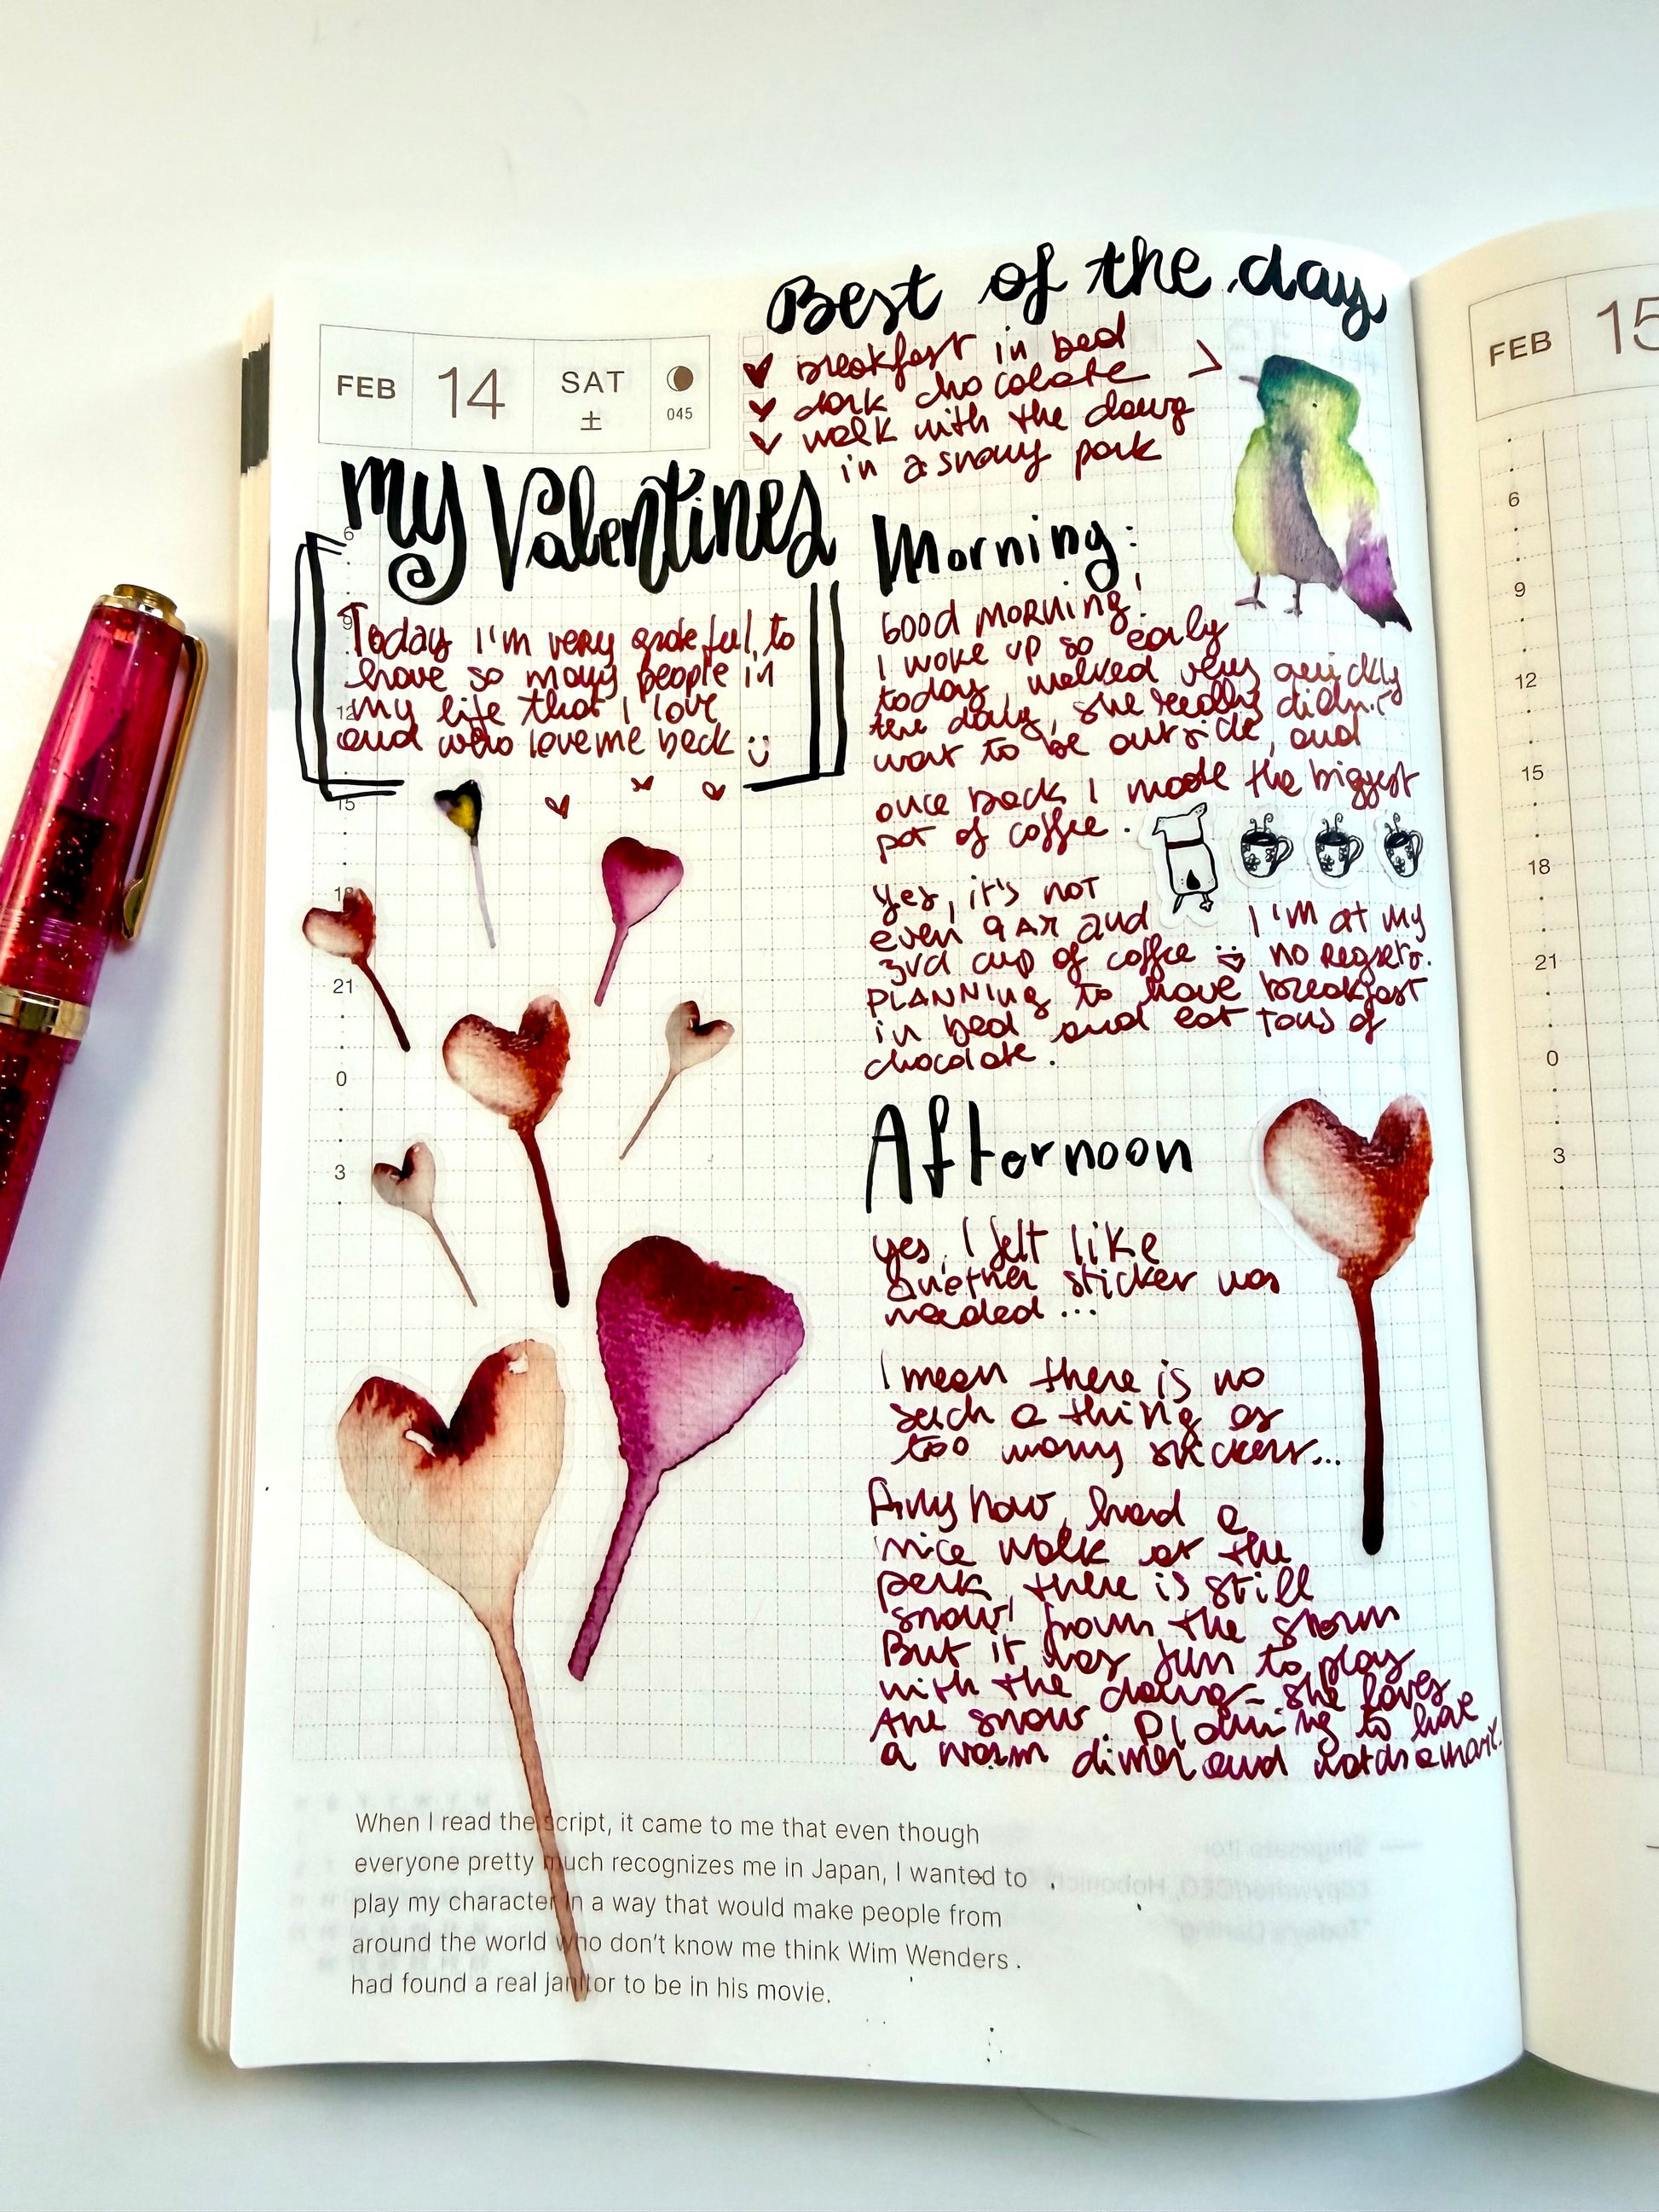 Best of the day
breakfast in bed
dark chocolate
walk with the dawg
in a snowy park
FEB 14 SAT
±
045
My Valentines
Today I'm very grateful, to
have so many people in
my life that I love
and who love me back
6
9
12
15
18
21
0
3
Morning:
GOOD MORNING!
I woke up so early
today, walked very quickly
the dawg, she really didn't
want to be outside, and
once back I made the biggest
pot of coffee.
Yes, it's not
even 9AM and I'M at My
3rd cup of coffee no Regrets.
PLANNING to have breakfast
in bed and eat tons of
chocolate.
Afternoon
yes, I felt like
another sticker was
needed...
I mean there is no
such a thing as
too many stickers...
Anyhow, had a
nice walk at the
park, there is still
snow from the storm
But it was fun to play
with the dawg - she loves
the snow. Planning to have
a warm diner and
When I read the script, it came to me that even though
everyone pretty much recognizes me in Japan, I wanted to
play my character in a way that would make people from
around the world who don't know me think Wim Wenders
had found a real janitor to be in his movie.
FEB 15
6
9
12
15
18
21
0
3